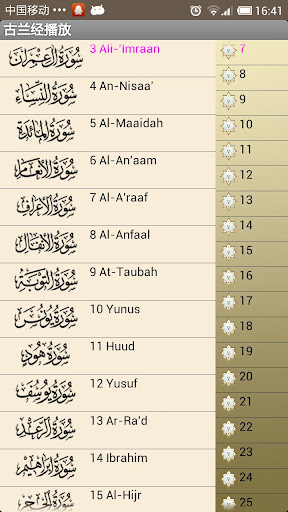 中国移动 16:41
古兰经播放
سورة آل عمران 3 Ali-'imraan
سورة النساء 4 An-Nisaa'
سورة المائدة 5 Al-Maaidah
سورة الأنعام 6 Al-An'aam
سورة الأعراف 7 Al-A'raaf
سورة الأنفال 8 Al-Anfaal
سورة التوبة 9 At-Taubah
سورة يونس 10 Yunus
سورة هود 11 Huud
سورة يوسف 12 Yusuf
سورة الرعد 13 Ar-Ra'd
سورة إبراهيم 14 Ibrahim
سورة الحجر 15 Al-Hijr
7
8
9
10
11
12
13
14
15
16
17
18
19
20
21
22
23
24
25